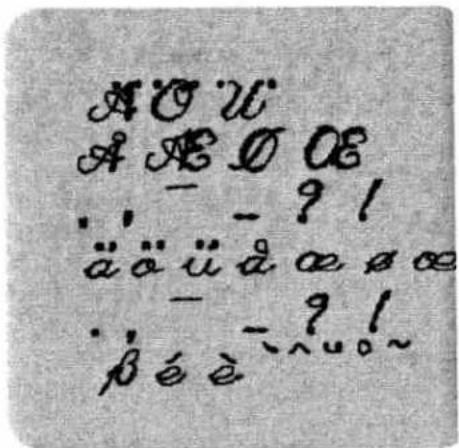 Ä Ö Ü
Å Æ Ø Œ
. , ¯ - ? !
ä ö ü å æ ø œ
. , ¯ - ? !
β é è ` ^ ˘ ° ~